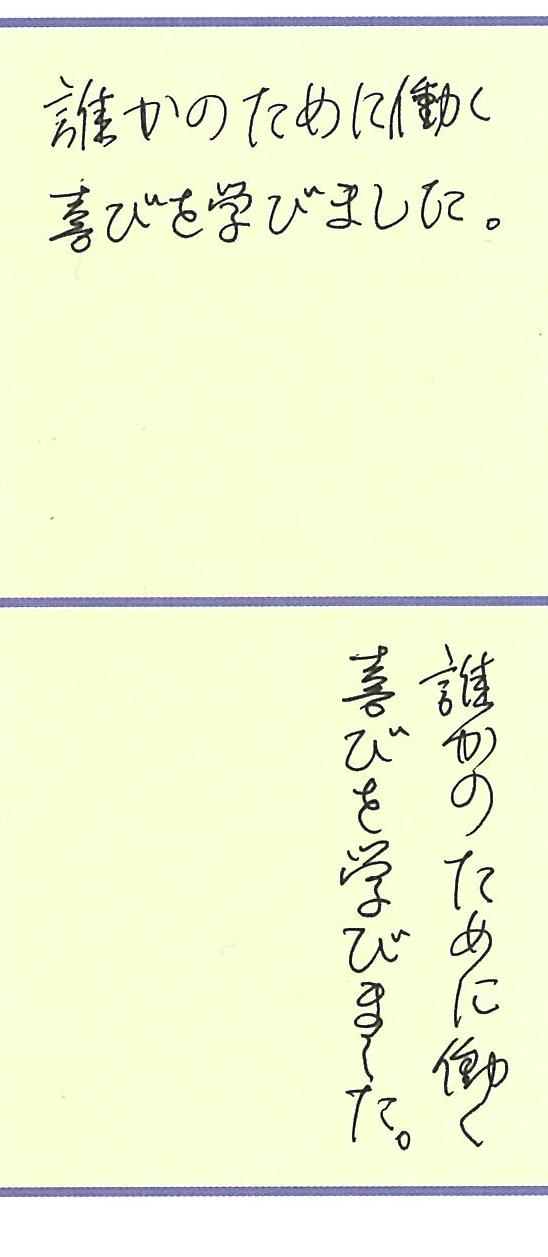 誰かのために働く
喜びを学びました。
誰かのために働く
喜びを学びました。